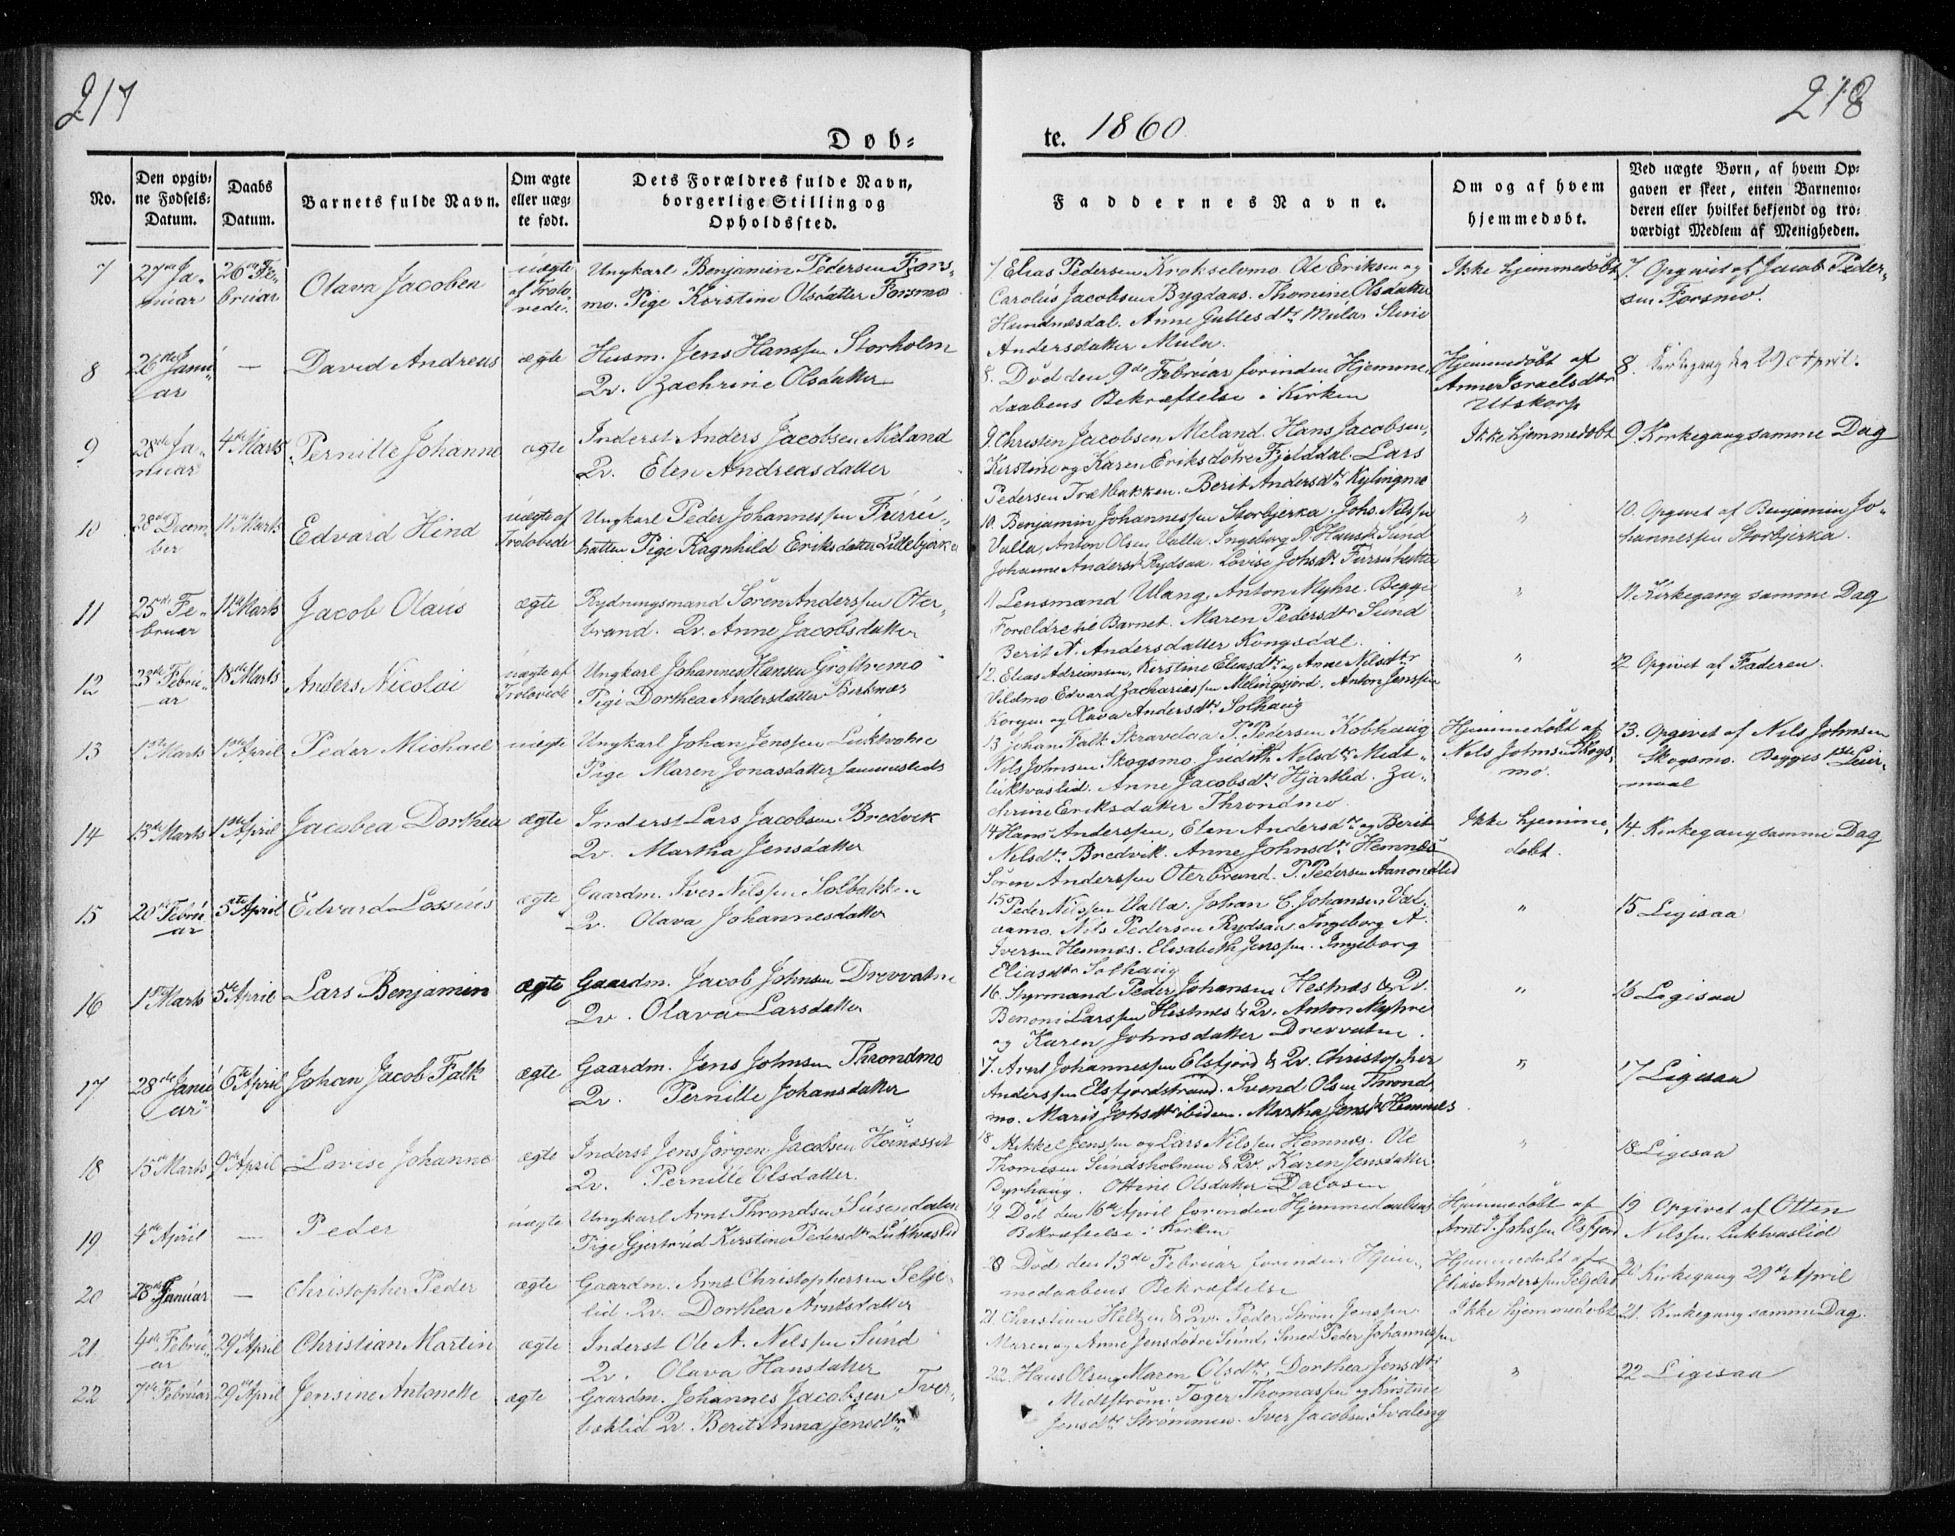 217
218
Døb-
te. 1860
No.
Den opgiv-
ne Fødsels-
Datum.
Daabs
Datum.
Barnets fulde Navn.
Om ægte
eller uæg-
te født.
Dets Forældres fulde Navn,
borgerlige Stilling og
Opholdssted.
Faddernes Navne.
Om og af hvem
hjemmedøbt.
Ved uægte Børn, af hvem Op-
gaven er skeet, enten Barnemo-
deren eller hvilket bekjendt og tro-
værdigt Medlem af Menigheden.
7
27de Ja-
nuar
26de Fe-
bruar
Olava Jacobea
uægte
af Trolo-
vede.
Ungkarl Benjamin Pedersen Fors-
mo. Pige Kerstine Olsdatter Forsmo
7 Elias Pedersen Krokselvmo Ole Eriksen og
Carolus Jacobsen Bygdaas. Thomine Olsdatter
Hundnæsdal. Anne Gullesdtr Mula. Stine
Andersdatter Mula.
Ikke hjemmedøbt
7. Opgivet af Jacob Peder-
sen Forsmo.
8
26de Janu-
ar
—
David Andreas
ægte
Husm. Jens Hanssen Storholm
Qv. Zachrine Olsdatter
8. Død den 9de Februar forinden Hjemme
daabens Bekræftelse i Kirken
Hjemmedøbt af
Anne Israelsdtr
Utskarp
8. Kirkegang den 29 April.
9
28de Ja-
nuar
4de Marts
Pernille Johanne
ægte
Inderst Anders Jacobsen Meland
Qv. Elen Andreasdatter
9. Christen Jacobsen Meland. Hans Jacobsen,
Kirstine og Karen Eriksdøtre Fjelddal. Lars
Pedersen Træthakken. Berit Andersdtr Kylingmo
Ikke hjemmedøbt
9. Kirkegang samme Dag
10
28de Decem-
ber
11te Marts
Edvard Hind
uægte af
Trolovede
Ungkarl Peder Johannessen Furru-
hatten Pige Ragnhild Eriksdatter Lillebjerka
10. Benjamin Johannessen Storbjerka. Johs. Nilssen
Valla, Anton Olsen Valla. Ingeborg A Hansdtr Sund
Johanne Andersdtr Rydsaa. Lovise Johsdtr Furruhatten
"
10. Opgivet af Benjamin Jo-
hannessen Storbjerka.
11
25de Fe-
bruar
11te Marts
Jacob Olaus
ægte
Rydningsmand Søren Anderssen Oter-
brand. Qv. Anne Jacobsdatter
11 Lensmand Ulang, Anton Myhre. Begge
Forældre til Barnet. Maren Pedersdtr Sund
Berit A. Andersdatter Kongsdal.
"
11. Kirkegang samme Dag
12
23de Febru-
ar
18de Marts
Anders Nicolai
uægte af
Trolovede
Ungkarl Johannes Hansen Groftremo
Pige Dorthea Andersdatter Birknæs
12. Elias Adriansen, Kirstine Eliasdtr og Anne Nilsdtr
Vildmo Edvard Zachariassen Melingsjord. Anton Jenssen
Korgen og Olava Andersdtr Solhaug
"
12 Opgivet af Faderen.
13
1ste Marts
1ste April
Peder Michael
uægte
Ungkarl Johan Jenssen Luktvatne
Pige Maren Jonasdatter sammesteds
13 Johan Falk Skravelaa P. Pedersen Kobhaug
Nils Johnsen Skogsmo. Judith Nilsdtr Midt-
luktvaslid. Anne Jacobsdtr Hjartlid. Za-
chrine Eriksdatter Throndmo.
Hjemmedøbt af
Nils Johnsen Skogs-
mo.
13. Opgivet af Nils Johnsen
Skogsmo. Begges 1ste Leier-
maal
14
15de Marts
1ste April
Jacobea Dorthea
ægte
Inderst Lars Jacobsen Bredvik
Qv. Martha Jensdatter
14 Hans Anderssen, Elen Andersdtr og Berit
Nilsdtr Bredvik. Anne Johnsdtr Hemnæs
Søren Anderssen Oterbrand. P. Pedersen Aanonlid
Ikke hjemme-
døbt.
14 Kirkegang samme Dag
15
20de Febru-
ar
5te April
Edvard Lossius
ægte
Gaardm. Iver Nilssen Solbakken
Qv. Olava Johannesdatter
15 Peder Nilssen Valla. Johan C. Johansen Val-
aamo. Nils Pedersen Rydsaa, Ingeborg A.
Iversen Hemnæs. Elisabeth Jenssen. Ingeborg
Eliasdtr Solhaug
"
15 Ligesaa
16
1ste Marts
5te April
Lars Benjamin
ægte
Gaardm. Jacob Johnsen Drevvatne
Qv. Olava Larsdatter
16. Styrmand Peder Johansen Hestnæs & Qv.
Benoni Larssen Hestnes & Qv. Anton Myhre
og Karen Johnsdatter Drevvatne.
"
16 Ligesaa
17
28de Janu-
ar
6te April
Johan Jacob Falk
ægte
Gaardm. Jens Johnsen Throndmo
Qv. Pernille Johansdatter
17. Arnt Johannessen Elsfjord & Qv. Christopher
Anderssen Elsfjordstrand. Svend Olsen Thrond
mo. Marit Johsdtr ibidem. Martha Jensdtr Hemnes
"
17 Ligesaa
18
15de Marts
9de April
Lovise Johanna
ægte
Inderst Jens Jørgen Jacobsen
Qv. Pernille Olsdatter.
18 Mikkel Jenssen og Lars Nilssen Hemnes. Ole
Thomesen Sundsholmen & Qv. Karen Jensdatter
Dyrhaug. Ottine Olsdatter Daaosen
"
18 Ligesaa
19
4de April
—
Peder
uægte
Ungkarl Arnt Throndsen Susendalen
Pige Gjertrud Kerstine Pedersdtr Luktvaslid
19 Død den 16de April forinden Hjemmedaabens
Bekræftelse i Kirken
Hjemmedøbt af
Arnt J. Johssen Elsfjord
19 Opgivet af Otten
Nilssen Luktvaslid
20
28de Januar
—
Christopher Peder
ægte
Gaardm. Arnt Christophersen Selje-
lid Qv. Dorthea Arntsdatter
20 Død den 13de Februar forinden Hjem-
medaabens Bekræftelse
Hjemmedøbt af
Elias Anderssen Seljelid
20 Kirkegang 29de April
21
4de Febru-
ar
29de April
Christian Martin
ægte
Inderst Ole A. Nilssen Sund
Qv. Olava Hansdatter
21. Christian Heltzen & Qv. Peder Jenssen
Maren og Anne Jensdøtre Sund. Smed Peder Johannessen
Ikke hjemmedøbt
21. Kirkegang samme Dag.
22
7de Februar
29de April
Jensine Antonette
ægte
Gaardm. Johannes Jacobsen Tver-
baklid Qv. Berit Anna Jensdtr
22. Hans Olsen, Maren Olsdtr, Dorthea Jensdtr
Midtstrøm. Tøger Thomassen og Kirstine
Jensdtr Strømmen. Iver Jacobsen Svaleng
"
22 Ligesaa